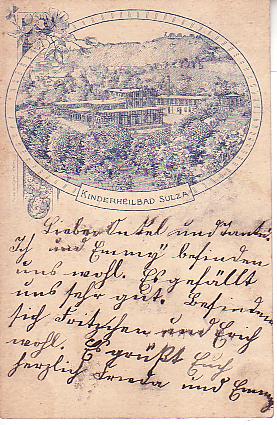 KINDERHEILBAD SULZA
Lieber Onkel und Tante!
Ich und Emmy befinden
uns wohl. Es gefällt
uns sehr gut. Befinden
sich Fritzchen und Erich
wohl. Es grüßt Euch
herzlich Frieda und Emmy